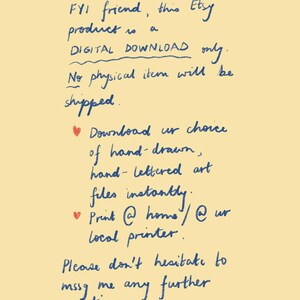 FYI friend, this Etsy
product is a
DIGITAL DOWNLOAD only.
No physical item will be
shipped.
Download ur choice
of hand-drawn,
hand-lettered art
files instantly.
Print @ home / @ ur
local printer.
Please don't hesitate to
mssg me any further